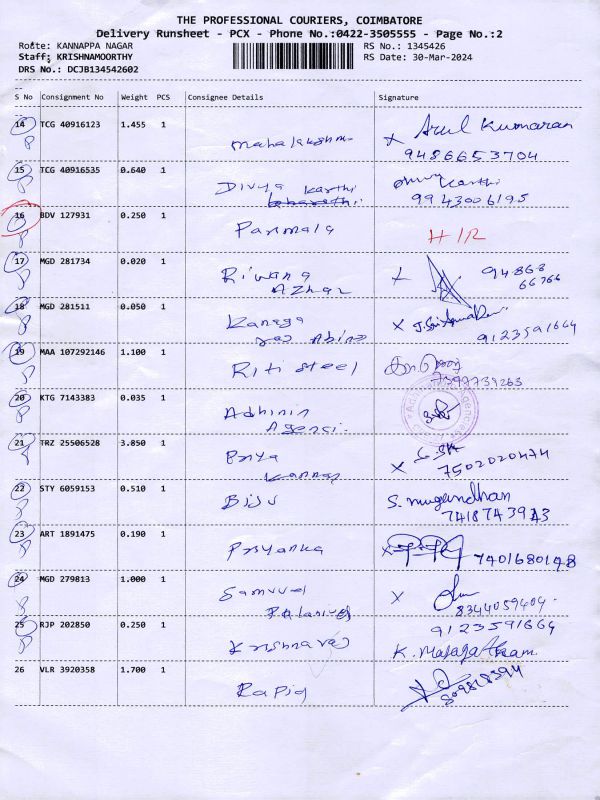 THE PROFESSIONAL COURIERS, COIMBATORE
Delivery Runsheet - PCX - Phone No.:0422-3505555 - Page No.:2
Route: KANNAPPA NAGAR
RS No.: 1345426
Staff: KRISHNAMOORTHY
RS Date: 30-Mar-2024
DRS No.: DCJB134542602
S No Consignment No Weight PCS Consignee Details Signature
14 TCG 40916123 1.455 1 Mahalakshmi x Arul Kumaran
9486653704
15 TCG 40916535 0.640 1 Divya Karthi Karthi
9943006195
16 BDV 127931 0.250 1 Parimala HIR
17 MGD 281734 0.020 1 Riwana
Azhar
94868
66766
18 MGD 281511 0.050 1 Kanaga x
9123591664
19 MAA 107292146 1.100 1 Riti steel
7397739263
20 KTG 7143383 0.035 1 Adhinin
Agenci.
21 TRZ 25506528 3.850 1 Priya
Kannan
x
7502020474
22 STY 6059153 0.510 1 Biju S. mugundhan
7418743943
23 ART 1891475 0.190 1 Priyanka x 7401680148
24 MGD 279813 1.000 1 Samuvel
Palanivel
x
8344059404.
25 RJP 202850 0.250 1 Krishnaraj 9123591664
K.
26 VLR 3920358 1.700 1 Rapid